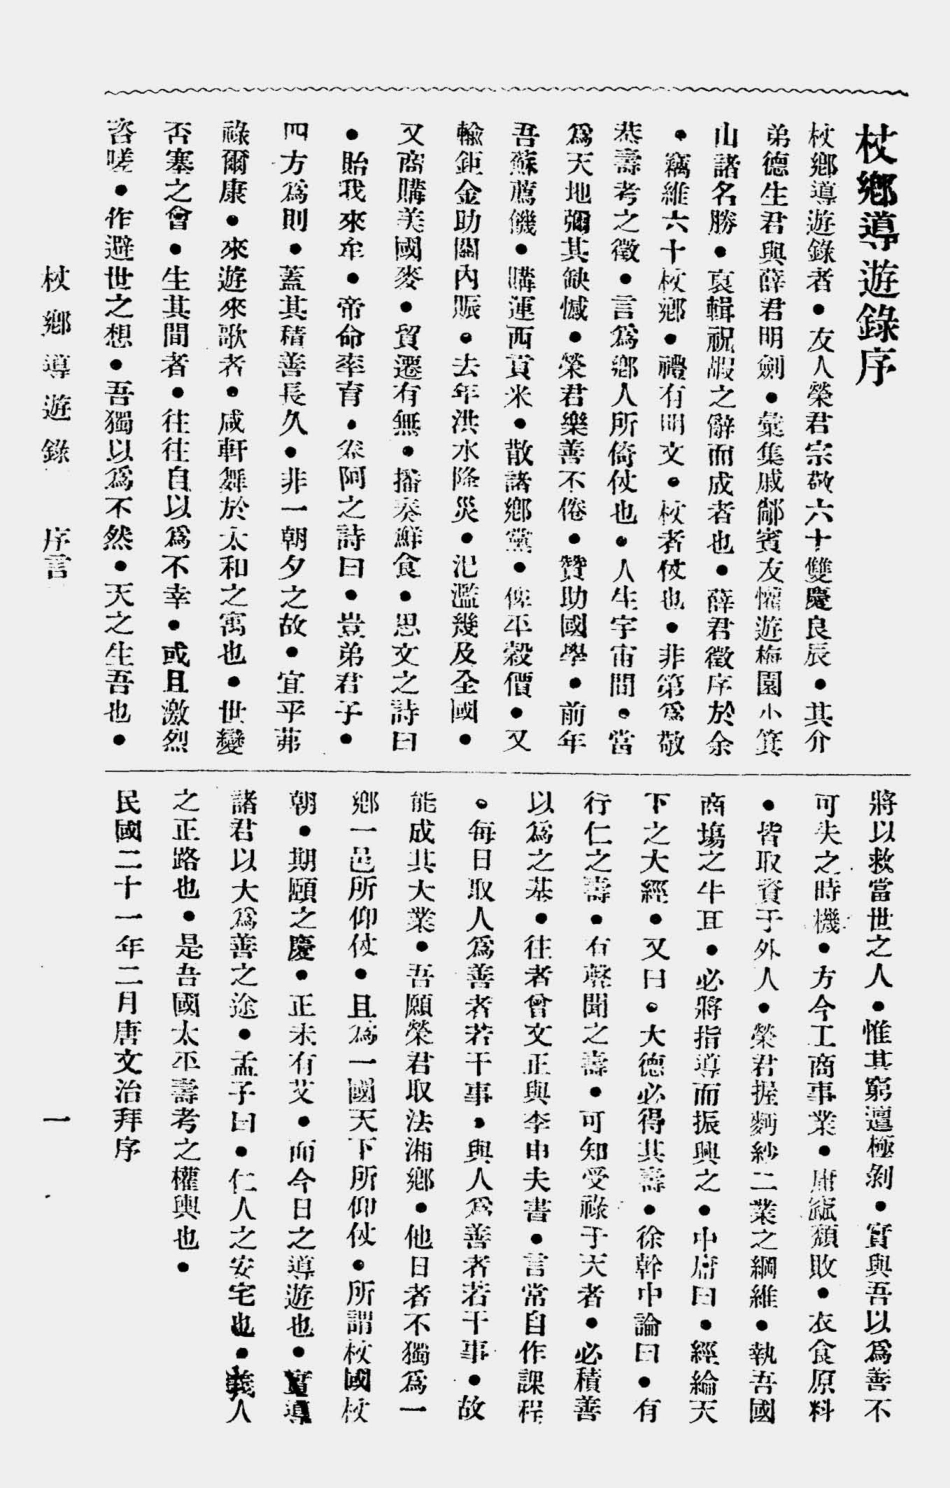 杖鄉導遊錄序
杖鄉導遊錄者●友人榮君宗敬六十雙慶良辰●其介
弟德生君與薛君明劍●彙集戚鄰賓友懽遊梅園小箕
山諸名勝●裒輯祝嘏之辭而成者也●薛君徵序於余
●竊維六十杖鄉●禮有明文●杖者仗也●非第爲敬
恭壽考之徵●言爲鄉人所倚仗也●人生宇宙間●當
爲天地彌其缺憾●榮君樂善不倦●贊助國學●前年
吾蘇薦饑●購運西貢米●散諸鄉黨●俾平穀價●又
輸鉅金助關內賑●去年洪水降災●氾濫幾及全國●
又商購美國麥●貿遷有無●播奏鮮食●思文之詩曰
●貽我來牟●帝命率育●卷阿之詩曰●豈弟君子●
四方爲則●蓋其積善長久●非一朝夕之故●宜乎茀
祿爾康●來遊來歌者●咸軒舞於太和之寓也●世變
否塞之會●生其間者●往往自以爲不幸●或且激烈
咨嗟●作避世之想●吾獨以爲不然●天之生吾也●
將以救當世之人●惟其窮邅極剝●實與吾以爲善不
可失之時機●方今工商事業●啙窳頹敗●衣食原料
●皆取資于外人●榮君握麪紗二業之綱維●執吾國
商場之牛耳●必將指導而振興之●中庸曰●經綸天
下之大經●又曰●大德必得其壽●徐幹中論曰●有
行仁之壽●有聲聞之壽●可知受祿于天者●必積善
以爲之基●往者曾文正與李申夫書●言常自作課程
●每日取人爲善者若干事●與人爲善者若干事●故
能成其大業●吾願榮君取法湘鄉●他日者不獨爲一
鄉一邑所仰仗●且爲一國天下所仰仗●所謂杖國杖
朝●期頤之慶●正未有艾●而今日之導遊也●實導
諸君以大爲善之途●孟子曰●仁人之安宅也●義人
之正路也●是吾國太平壽考之權輿也●
民國二十一年二月唐文治拜序
杖鄉導遊錄 序言 一